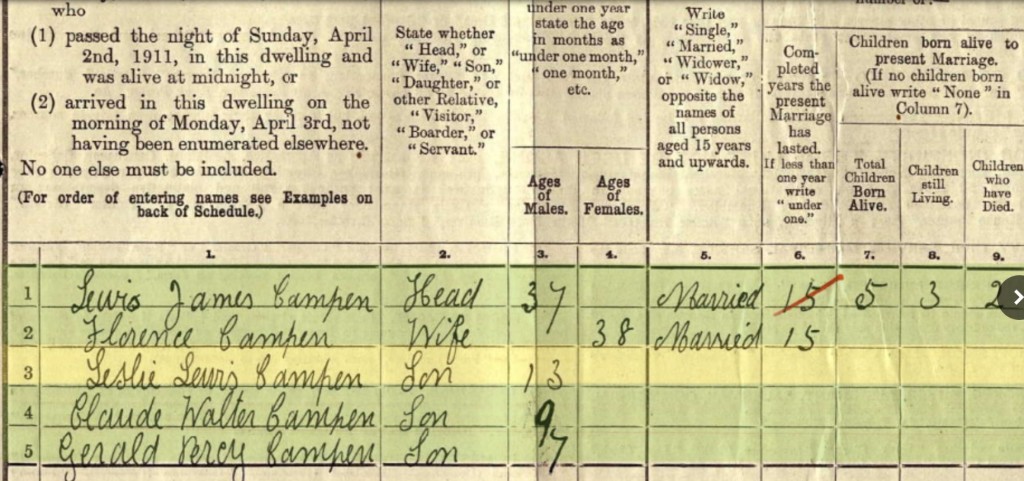 who
(1) passed the night of Sunday, April
2nd, 1911, in this dwelling and
was alive at midnight, or
(2) arrived in this dwelling on the
morning of Monday, April 3rd, not
having been enumerated elsewhere.
No one else must be included.
(For order of entering names see Examples on
back of Schedule.)
State whether
"Head," or
"Wife," "Son,"
"Daughter," or
other Relative,
"Visitor,"
"Boarder," or
"Servant."
under one year
state the age
in months as
"under one month,"
"one month,"
etc.
Ages
of
Males.
Ages
of
Females.
Write
"Single,"
"Married,"
"Widower,"
or "Widow,"
opposite the
names of
all persons
aged 15 years
and upwards.
Com-
pleted
years the
present
Marriage
has
lasted.
If less than
one year
write
"under
one."
Children born alive to
present Marriage.
(If no children born
alive write "None" in
Column 7).
Total
Children
Born
Alive.
Children
still
Living.
Children
who
have
Died.
1. 2. 3. 4. 5. 6. 7. 8. 9.
1 Lewis James Campen Head 37 Married 15 5 3 2
2 Florence Campen Wife 38 Married 15
3 Leslie Lewis Campen Son 13
4 Claude Walter Campen Son 9
5 Gerald Percy Campen Son 7